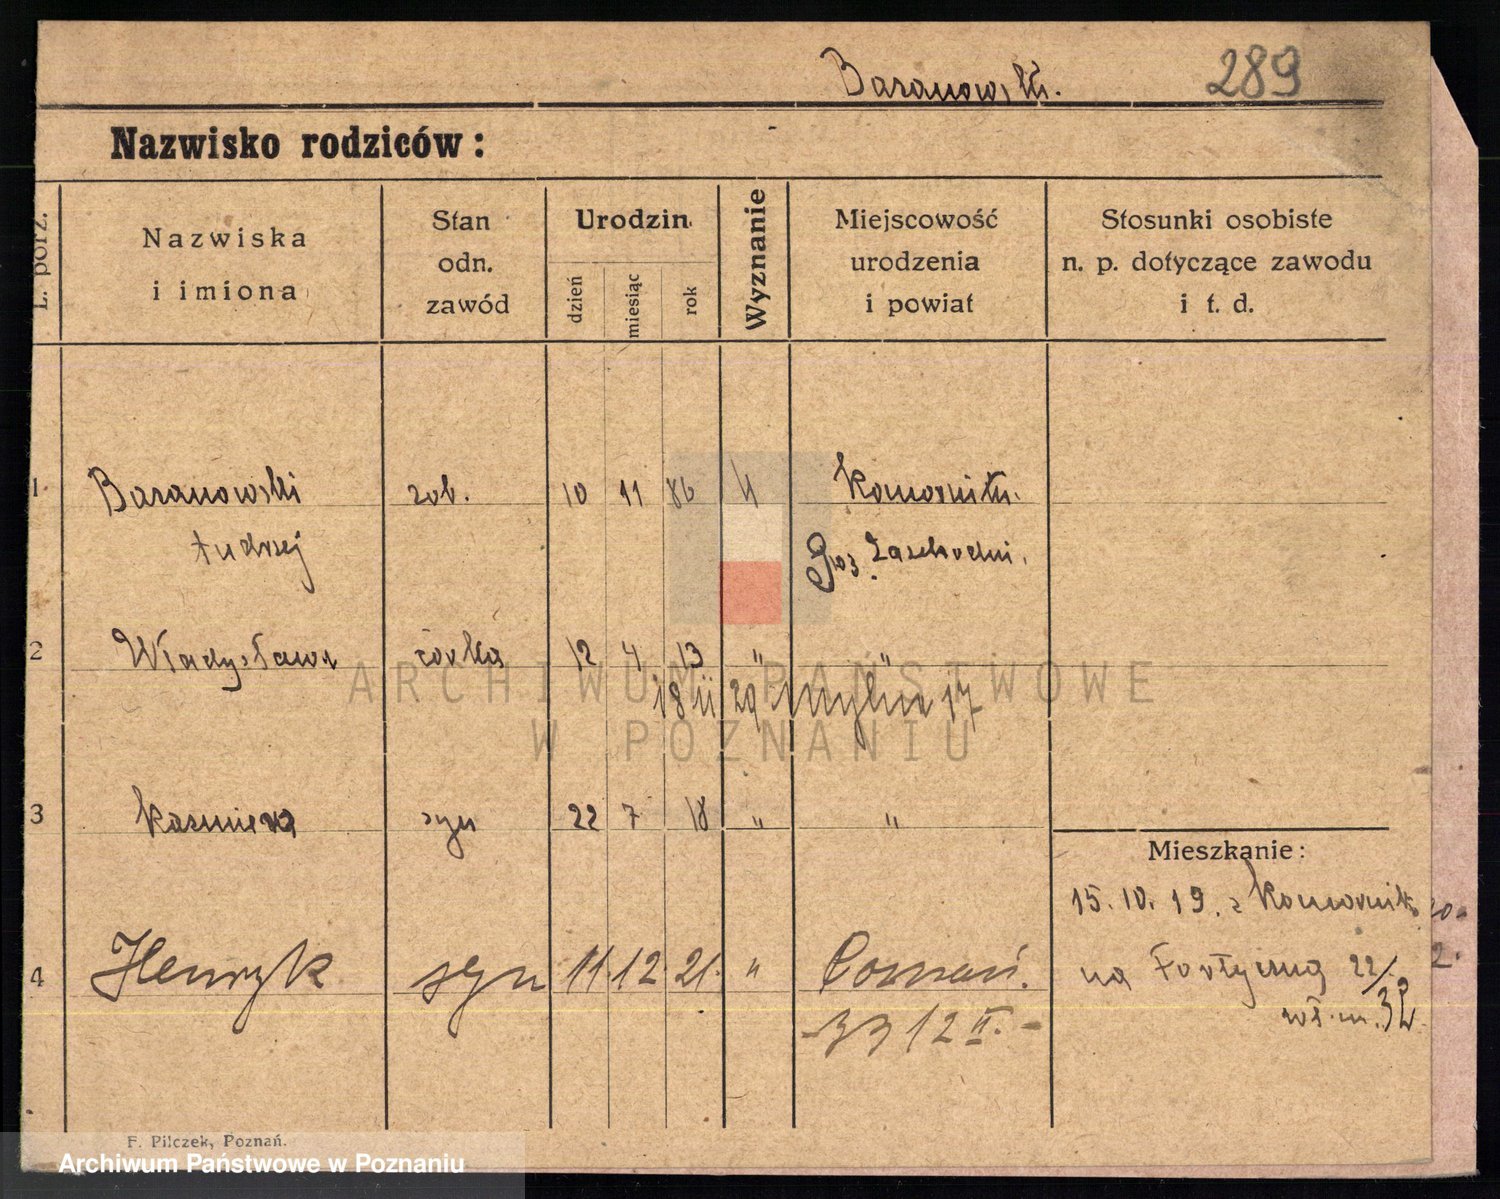 Baranowski.
289
Nazwisko rodziców:
L. porz.
Nazwiska
i imiona
Stan
odn.
zawód
Urodzin
dzień
miesiąc
rok
Wyznanie
Miejscowość
urodzenia
i powiat
Stosunki osobiste
n. p. dotyczące zawodu
i t. d.
1 Baranowski rob. 10 11 86 Komorniki.
Andrzej Poz. Zachodni.
2 Władysława córka 12 4 13 " "
18 II 29 Mylna 17
3 Kazmierz syn 22 7 18 " "
Mieszkanie:
15. 10. 19. z Komornik
4 Henryk syn 11. 12 21. " Poznań.
na Fortyczną 22/
12 II. -
m. 32
F. Pilczek, Poznań.
ARCHIWUM PAŃSTWOWE
W POZNANIU
Archiwum Państwowe w Poznaniu